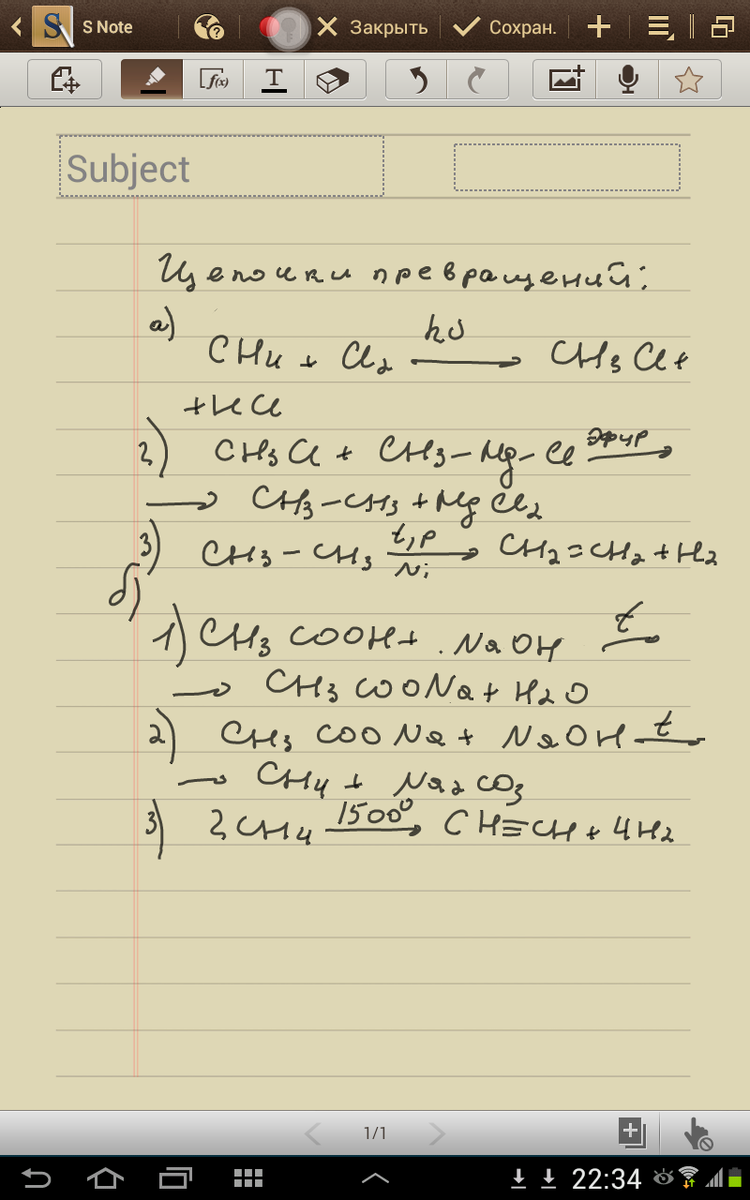 S Note
Закрыть
Сохран.
f(x)
T
Subject
Цепочки превращений:
а)
hυ
CH4 + Cl2 ⟶ CH3Cl+
+HCl
2) CH3Cl + CH3-Mg-Cl эфир ⟶
⟶ CH3-CH3 + MgCl2
3) CH3-CH3 t,p ⟶ Ni CH2=CH2+H2
б)
1) CH3COOH+ .NaOH t ⟶
⟶ CH3COONa+H2O
2) CH3COONa + NaOH t ⟶
⟶ CH4 + Na2CO3
3) 2CH4 1500° ⟶ CH≡CH+4H2
1/1
22:34